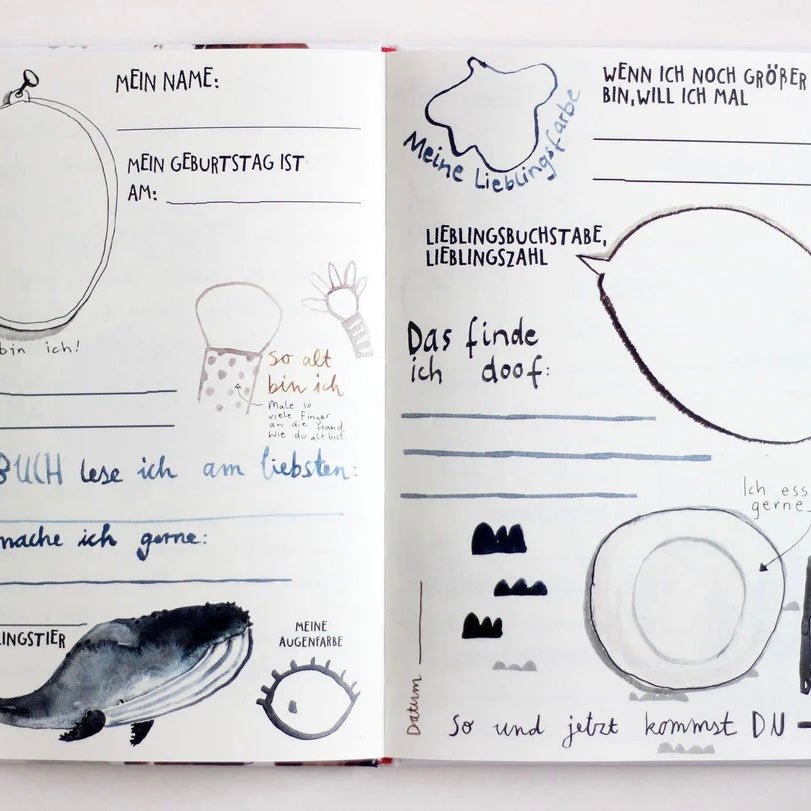 MEIN NAME:
MEIN GEBURTSTAG IST
AM:
bin ich!
So alt
bin ich
Male so
viele Finger
an die Hand,
wie du alt bist.
BUCH lese ich am liebsten:
mache ich gerne:
LINGSTIER
MEINE
AUGENFARBE
Meine Lieblingsfarbe
WENN ICH NOCH GRÖßER
BIN, WILL ICH MAL
LIEBLINGSBUCHSTABE,
LIEBLINGSZAHL
Das finde
ich doof:
Ich ess
gerne
Datum
So und jetzt kommst DU